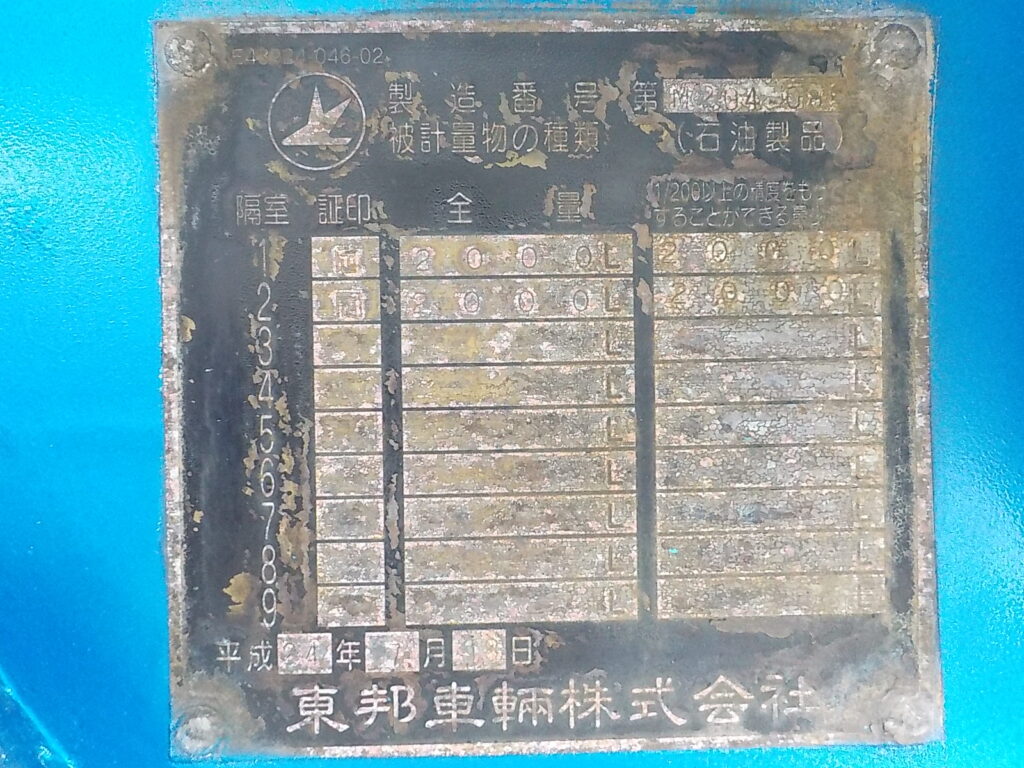 046-02
製造番号 第
被計量物の種類 (石油製品)
隔室 証印 全量 1/200以上の精度をも
することができる最少
1 2000L 2000L
2 2000L 2000L
3 L L
4 L L
5 L L
6 L L
7 L L
8 L L
9 L L
平成24年7月 日
東邦車輛株式会社